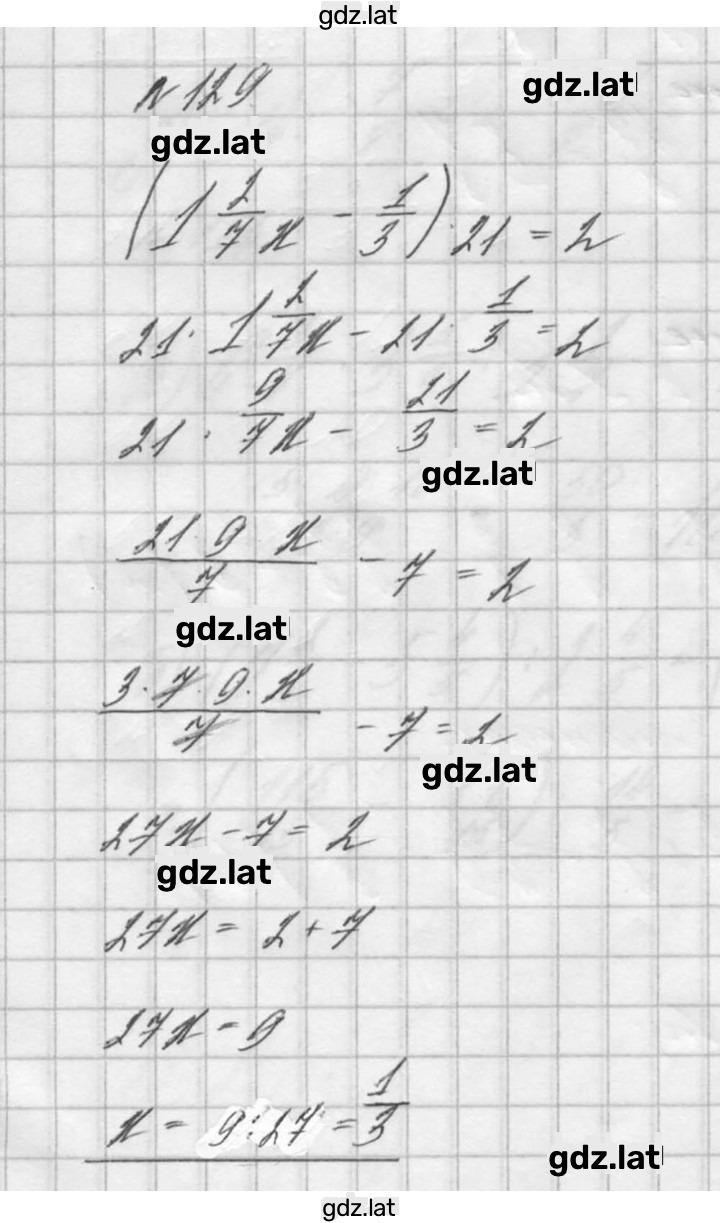 gdz.lat
№ 129
gdz.lat
gdz.lat
(1 2/7 x - 1/3) · 21 = 2
21 · 1 2/7 x - 21 · 1/3 = 2
21 · 9/7 x - 21/3 = 2
gdz.lat
21 · 9 x / 7 - 7 = 2
gdz.lat
3 · 7 · 9 · x / 7 - 7 = 2
gdz.lat
27x - 7 = 2
gdz.lat
27x = 2 + 7
27x = 9
x = 9 : 27 = 1/3
gdz.lat
gdz.lat